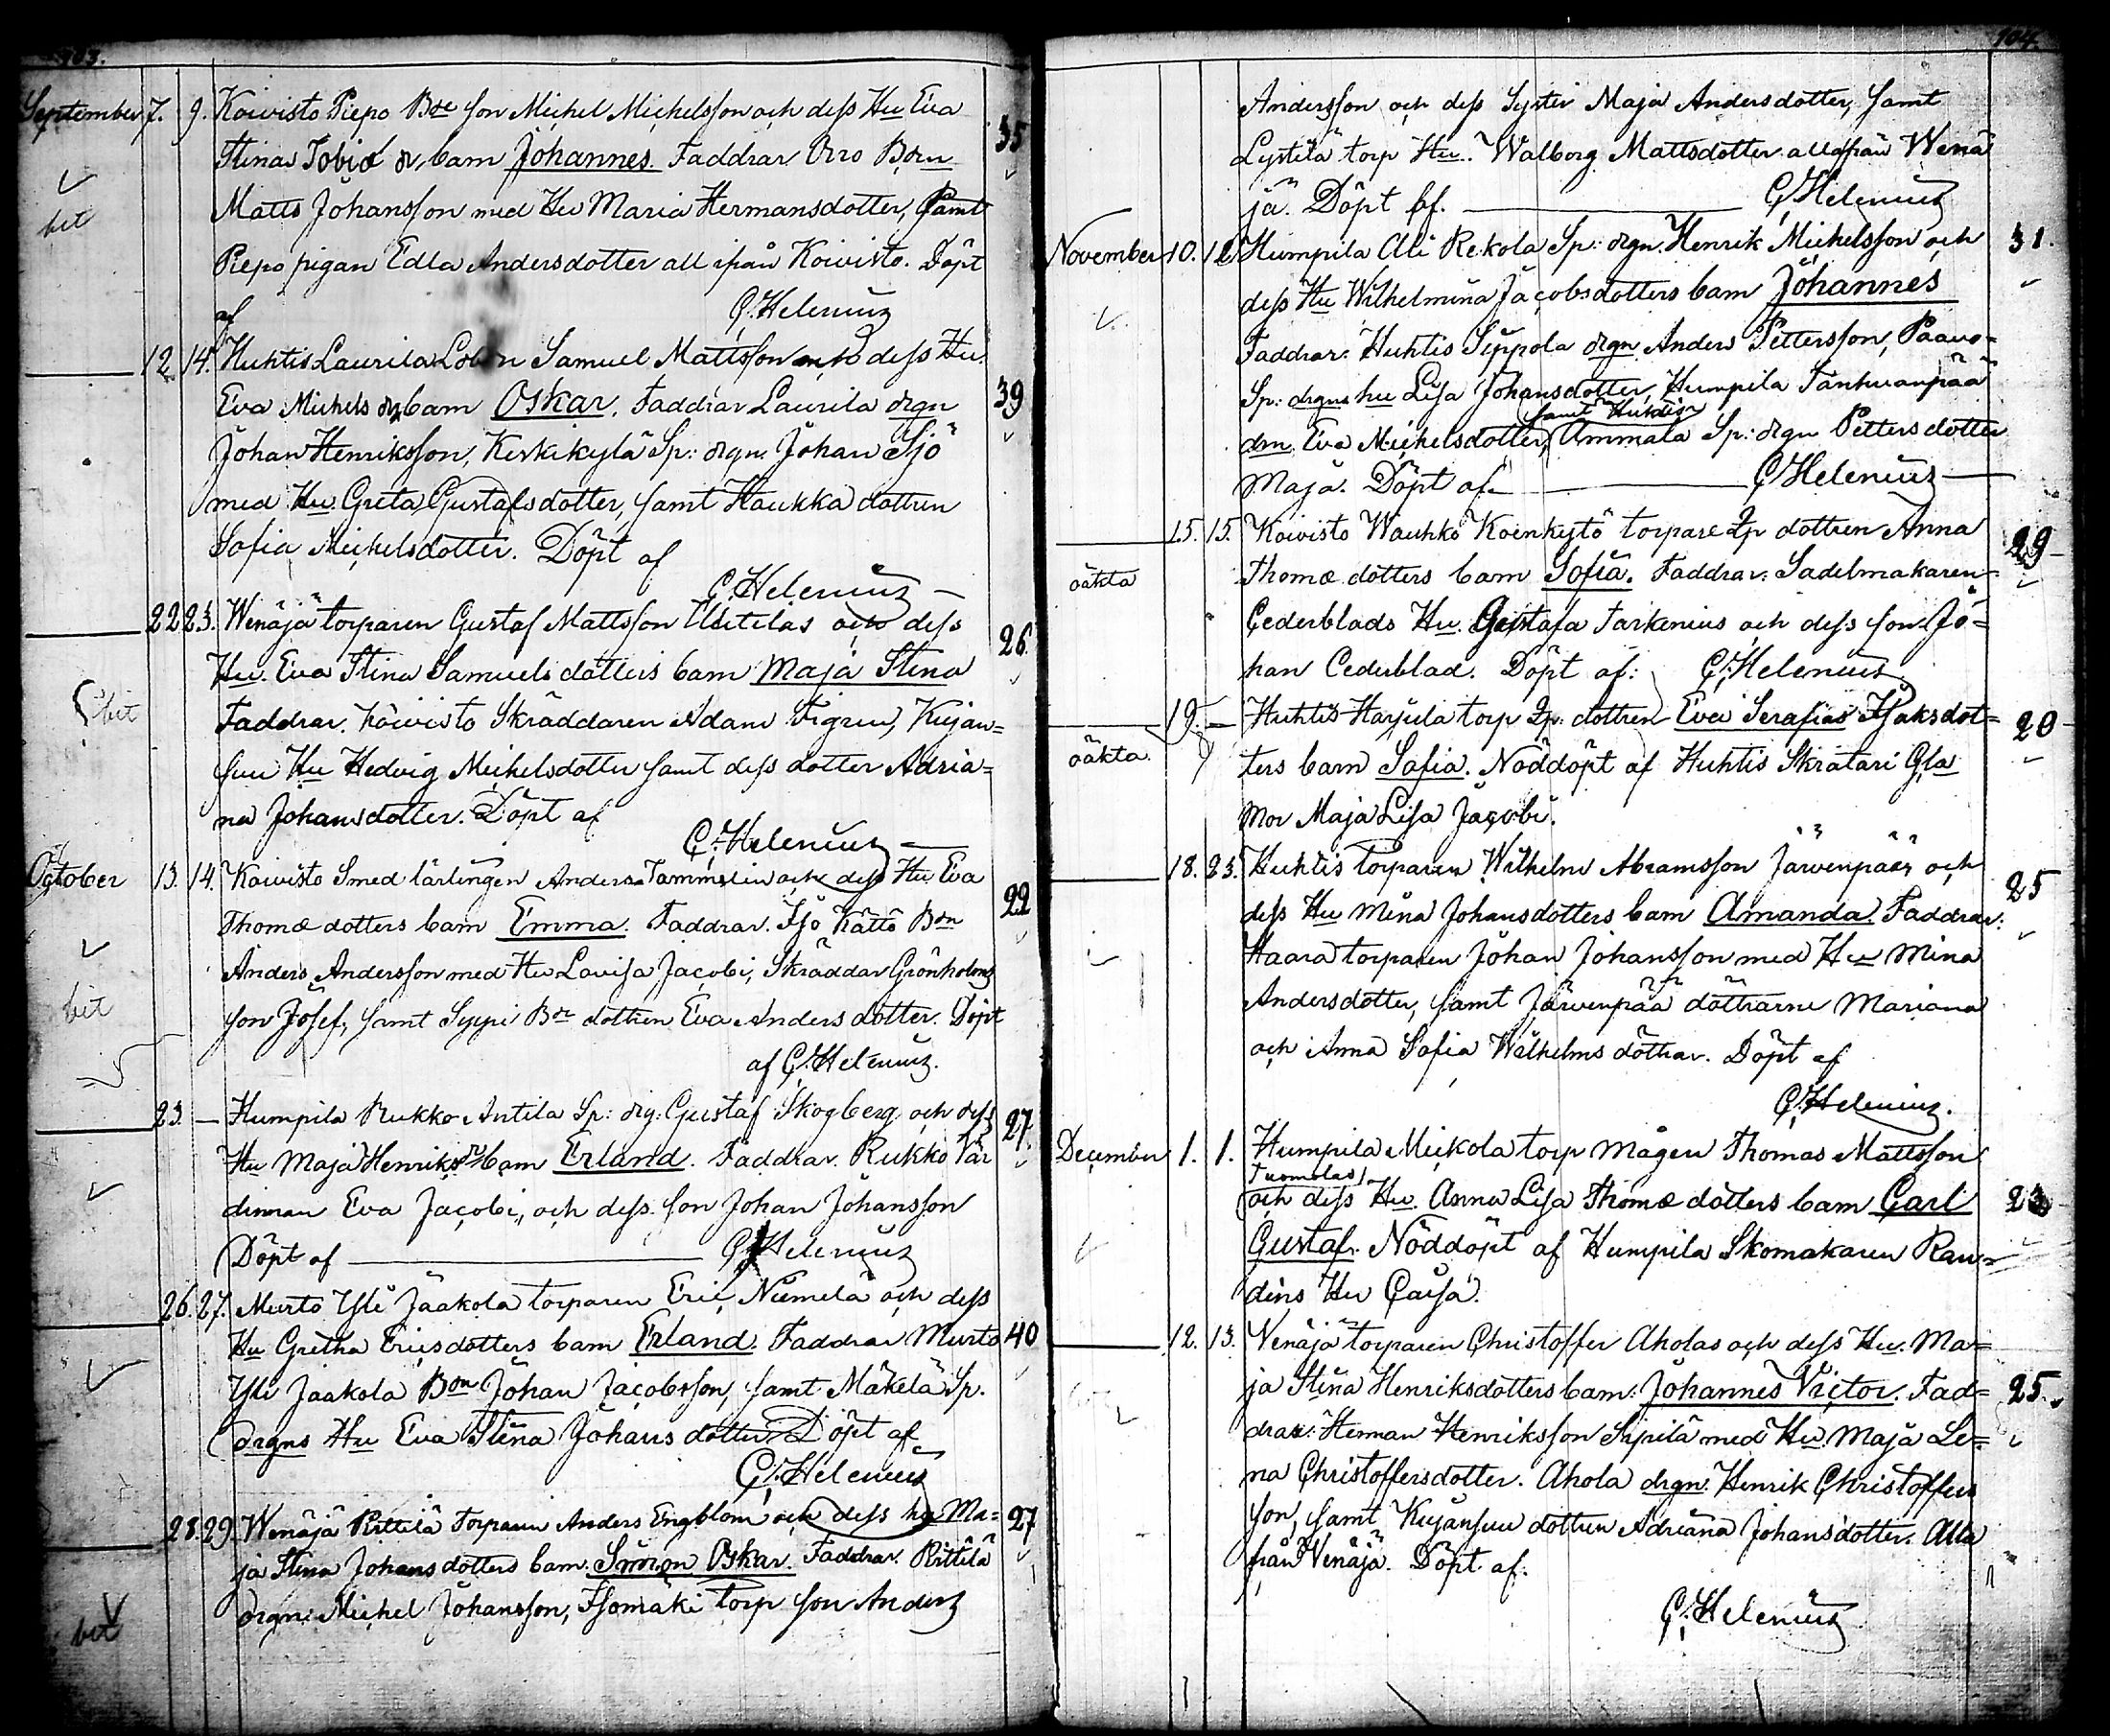 103.
September 7. 9. Koivisto Piepo Bde son Michel Michelsson och dess Hu Eva
Stina Tobiæ dr, barn Johannes. Faddrar Orro Bdn 35
Matts Johansson med Hu Maria Hermansdotter, samt
bet
Piepo pigan Edla Andersdotter all ifrån Koivisto. Döpt
af C. Helenius
12. 14. Huhtis Laurila Samuel Mattsson och dess Hu.
Eva Michels dr barn Oskar. Faddrar Laurila drgn 39
Johan Henriksson, Keskikylä Sp: drgn Johan Sjö
med Hu. Greta Gustafsdotter, samt Haukka dottren
Sofia Michelsdotter. Döpt af
C. Helenius
22 23. Wenäjä torparen Gustaf Mattsson Uutelas och dess
Hu. Eva Stina Samuelsdotters barn Maja Stina 26
bet
Faddrar. Koivisto Skräddaren Adam Kujan=
suu Hu Hedvig Michelsdotter samt dess dotter Adria=
na Johansdotter. Döpt af
C. Helenius
October 13. 14. Koivisto Smed lärlingen Anders Tammelin och dess Hu Eva
Thomæ dotters barn Emma. Faddrar. Isö Kättö Bdn 22
Anders Andersson med Hu Lovisa Jacobi, Skräddar Grönholms
bet
son Josef, samt Syppi Bde dottren Eva Anders dotter. Döpt
af C. Helenius.
23. — Humpila Rukko Antila Sp: drg: Gustaf Skogberg och dess
Hu Maja Henriks dr barn Erland. Faddrar. Rukko Vär 27.
dinnan Eva Jacobi, och dess son Johan Johansson
Döpt af C. Helenius
26. 27. Murto Yli Jaakola torparen Eric Niemelä och dess
Hu Gretha Ericsdotters barn Erland. Faddrar Murto 40
Yli Jaakola Bdn Johan Jacobsson, samt Mäkelä Sp.
drgns Hu Eva Stina Johans dotter. Döpt af
C. Helenius
28. 29. Wenäjä Rittilä Torparen Anders Engblom och dess hu Ma= 27
ja Stina Johansdotters barn. Simon Oskar. Faddrar. Rittilä
drgn: Michel Johansson, Isomäki torp son Anders
bet
104.
Andersson och dess Syster Maja Andersdotter, samt
Lystilä torp Hu. Walborg Mattsdotter alla från Wenä
jä. Döpt af. C. Helenius
November 10. 12 Humpila Ali Rekola Sp: drgn. Henrik Michelsson och 31.
dess Hu Wilhelmina Jacobsdotters barn Johannes
Faddrar. Huhtis Seppola drgn Anders Pettersson, Paavo=
Sp: drgns hu Lisa Johansdotter, Humpila Tanhuanpää
samt Huhtis
dm Eva Michelsdotter, Ammala Sp: drgn Petters dotter
Maja. Döpt af C. Helenius
15. 15. Koivisto Wauhko Koenkytö torpare Qp dottren Anna 29
oäkta
Thomæ dotters barn Sofia. Faddrar: Sadelmakaren
Cederblads Hu. Gustafa Tarkenius och dess son Jo=
han Cederblad. Döpt af: C. Helenius
19. — Huhtis Harjula torp Qp. dottren Eva Serafias Isaksdot= 20
oäkta.
ters barn Sofia. Nöddöpt af Huhtis Skratari Gla
mor Maja Lisa Jacobi.
18. 23. Huhtis Torparen Wilhelm Abramsson Järvenpääs och
dess Hu Mina Johansdotters barn Amanda. Faddrar: 25
Haara torparen Johan Johansson med Hu Mina
Andersdotter, samt Järvenpää döttrarne Mariana
och Anna Sofia Wilhelms döttrar. Döpt af
C. Helenius.
December 1. 1. Humpila Mickola torp mågen Thomas Mattsson
Tuomolas
och dess Hu. Anna Lisa Thomæ dotters barn Carl 23
Gustaf. Nöddöpt af Humpila Skomakaren Ran=
dins Hu Caisa.
12. 13. Venäjä torparen Christoffer Aholas och dess Hu. Ma=
ja Stina Henriksdotters barn: Johannes Victor. Fad= 25.
drar: Herman Henriksson Sipilä med Hu. Maja Le=
na Christoffersdotter. Ahola drgn. Henrik Christoffers
son, samt Kujansuu dottren Adriana Johansdotter. Alla
från Venäjä. Döpt af.
C. Helenius